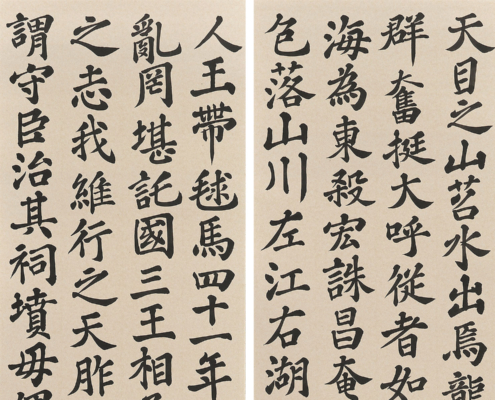 天目之山苕水出焉龍
群奮挺大呼從者如
海為東殺宏誅昌奄
包落山川左江右湖
人王帶毬馬四十一年
亂罔堪託國三王相
之志我維行之天胙
謂守臣治其祠墳毋